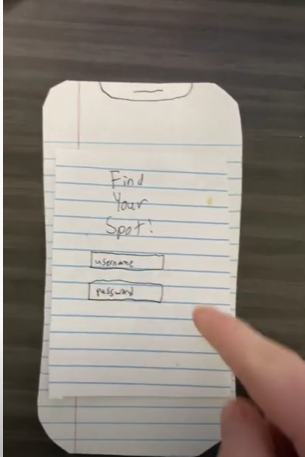 Find
Your
Spot!
username
password